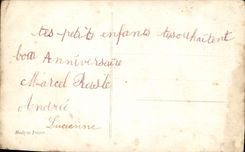 tes petits enfants te souhaitent
bon Anniversaire
Marcel
Andrée
Lucienne
Made in France